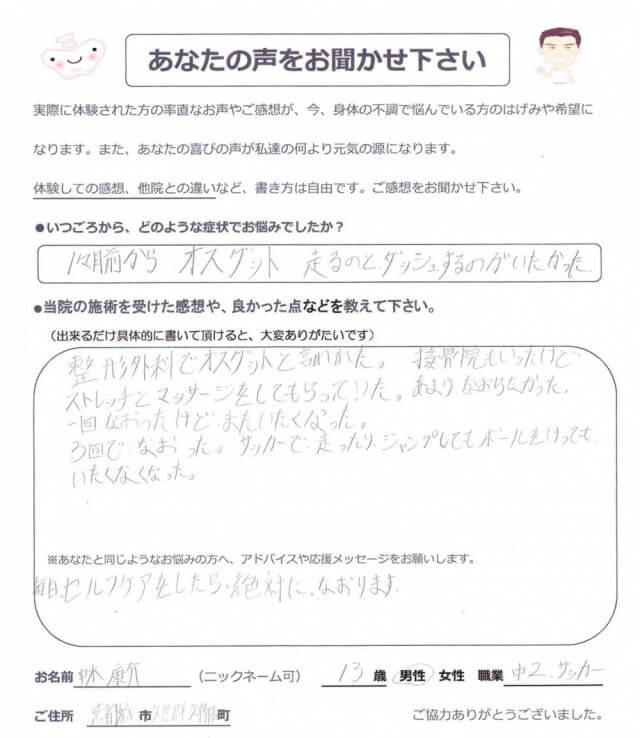 あなたの声をお聞かせ下さい
実際に体験された方の率直なお声やご感想が、今、身体の不調で悩んでいる方のはげみや希望に
なります。また、あなたの喜びの声が私達の何より元気の源になります。
体験しての感想、他院との違いなど、書き方は自由です。ご感想をお聞かせ下さい。
●いつごろから、どのような症状でお悩みでしたか？
前から オスグット 走るのとダッシュするのがいたかった
●当院の施術を受けた感想や、良かった点などを教えて下さい。
（出来るだけ具体的に書いて頂けると、大変ありがたいです）
整形外科でオスグットと言われた。 接骨院もいったけど
ストレッチとマッサージをしてもらっていた。あまりなおらなかった。
一回なおったけど、またいたくなった。
3回で、なおった。サッカーで、走ったり、ジャンプしてもボールをけっても、
いたくなくなった。
※あなたと同じようなお悩みの方へ、アドバイスや応援メッセージをお願いします。
毎日、セルフケアをしたら、絶対に、なおります。
お名前 （ニックネーム可） 13 歳 男性 女性 職業 中2 サッカー
ご住所 市 町 ご協力ありがとうございました。